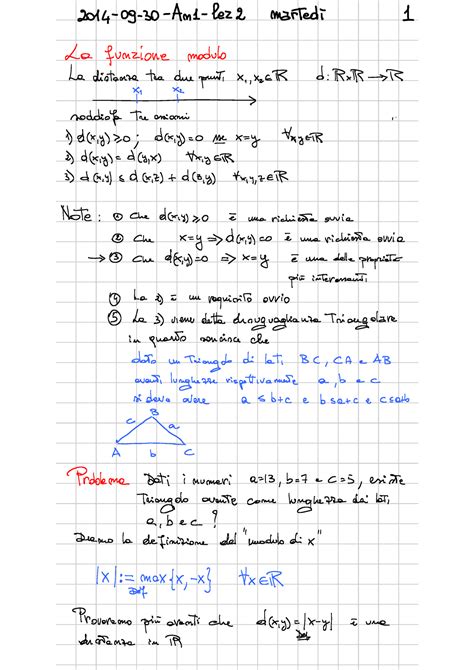 2014-09-30-Am1-Lez2 martedì 1
La funzione modulo
La distanza tra due punti x₁,x₂∈ℝ d:ℝ×ℝ→ℝ
x₁ x₂
soddisfa tre assiomi
1) d(x,y)≥0 ; d(x,y)=0 sse x=y ∀x,y∈ℝ
2) d(x,y) = d(y,x) ∀x,y∈ℝ
3) d(x,y) ≤ d(x,z) + d(z,y) ∀x,y,z∈ℝ
Note : ① Che d(x,y)≥0 è una richiesta ovvia
② Che x=y ⇒ d(x,y)=0 è una richiesta ovvia
→ ③ Che d(x,y)=0 ⇒ x=y è una delle proprietà
più interessanti
④ La 2) è un requisito ovvio
⑤ La 3) viene detta disuguaglianza Triangolare
in quanto sancisce che
dato un Triangolo di lati BC, CA e AB
aventi lunghezze rispettivamente a, b e c
si deve avere a ≤ b+c e b ≤ a+c e c ≤ a+b
B
c a
A b C
Problema Dati i numeri a=13, b=7 e c=5, esiste
Triangolo avente come lunghezza dei lati
a, b e c ?
Diamo la definizione del "modulo di x"
|x| := max{x,-x} ∀x∈ℝ
def
Proveremo più avanti che d(x,y)=|x-y| è una
distanza in ℝ